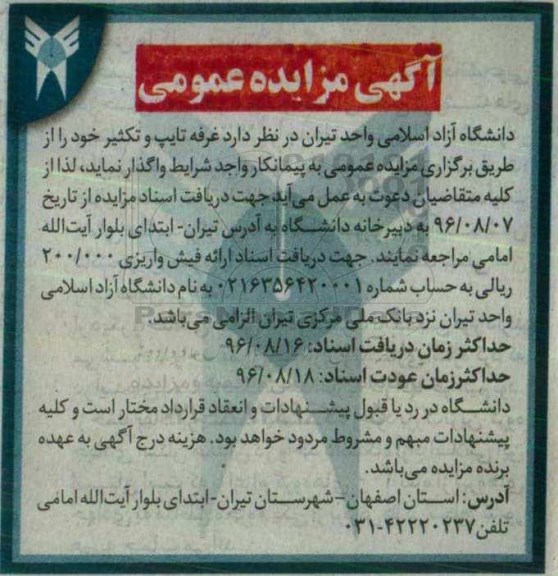 آگهی مزایده عمومی
دانشگاه آزاد اسلامی واحد تیران در نظر دارد غرفه تایپ و تکثیر خود را از
طریق برگزاری مزایده عمومی به پیمانکار واجد شرایط واگذار نماید، لذا از
کلیه متقاضیان دعوت به عمل می‌آید جهت دریافت اسناد مزایده از تاریخ
۹۶/۰۸/۰۷ به دبیرخانه دانشگاه به آدرس تیران- ابتدای بلوار آیت‌الله
امامی مراجعه نمایند. جهت دریافت اسناد ارائه فیش واریزی ۲۰۰/۰۰۰
ریالی به حساب شماره ۰۲۱۶۳۵۶۴۲۰۰۰۱ به نام دانشگاه آزاد اسلامی
واحد تیران نزد بانک ملی مرکزی تیران الزامی می‌باشد.
حداکثر زمان دریافت اسناد: ۹۶/۰۸/۱۶
حداکثرزمان عودت اسناد: ۹۶/۰۸/۱۸
دانشگاه در رد یا قبول پیشنهادات و انعقاد قرارداد مختار است و کلیه
پیشنهادات مبهم و مشروط مردود خواهد بود. هزینه درج آگهی به عهده
برنده مزایده می‌باشد.
آدرس: استان اصفهان – شهرستان تیران-ابتدای بلوار آیت‌الله امامی
تلفن ۴۲۲۲۰۲۳۷-۰۳۱